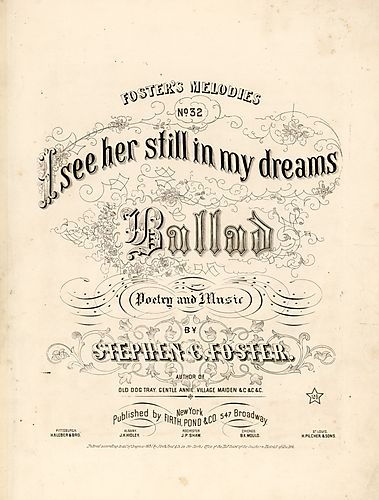 FOSTER'S MELODIES
No 32
I see her still in my dreams
Ballad
Poetry and Music
BY
STEPHEN C. FOSTER.
AUTHOR OF
OLD DOG TRAY, GENTLE ANNIE, VILLAGE MAIDEN &C &C &C.
New York
Published by FIRTH, POND & CO. 547 Broadway.
PITTSBURGH ALBANY ROCHESTER CHICAGO ST LOUIS
H. KLEBER & BRO. J. H. HIDLEY. J. P. SHAW. B. K. MOULD. H. PILCHER & SONS.